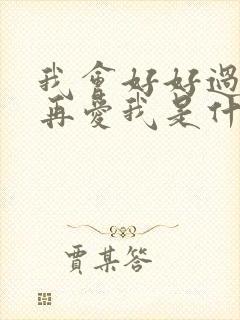 我會好好過
再愛我是什
賈某答